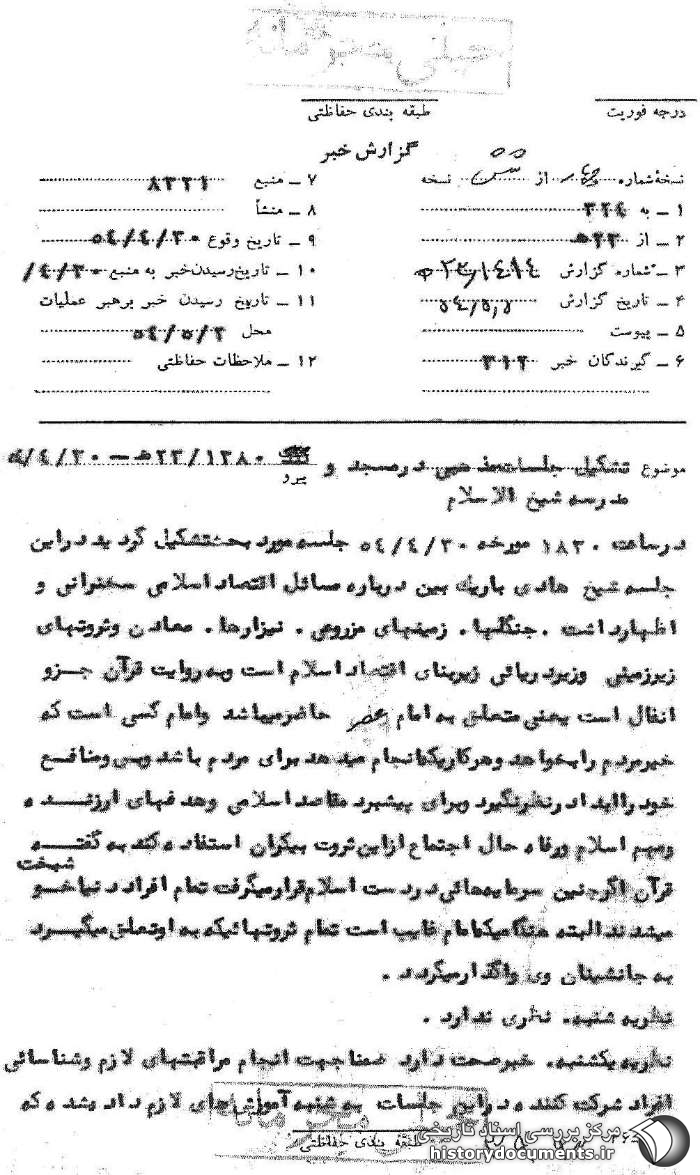 خیلی محرمانه
درجه فوریت
طبقه بندی حفاظتی
گزارش خبر
نسخهٔ شماره از نسخه
۱ ـ به ۳۲۴
۲ ـ از ۲۳ ه‍
۳ ـ شماره گزارش
۴ ـ تاریخ گزارش ۵۴/۵/۵
۵ ـ پیوست
۶ ـ گیرندگان خبر ۳۱۲
۷ ـ منبع ۸۳۳۱
۸ ـ منشأ
۹ ـ تاریخ وقوع ۵۴/۴/۳۰
۱۰ ـ تاریخ رسیدن خبر به منبع ۴/۳۰/
۱۱ ـ تاریخ رسیدن خبر برهبر عملیات
محل ۵۴/۵/۲
۱۲ ـ ملاحظات حفاظتی
موضوع تشکیل جلسات مذهبی در مسجد و
پیرو ۲۳/۱۳۸۰ ه‍ ـ ۴/۳۰/
مدرسه شیخ الاسلام
در ساعت ۱۸۳۰ مورخه ۵۴/۴/۳۰ جلسه مورد بحث تشکیل گردید در این
جلسه شیخ هادی باریک بین درباره مسائل اقتصاد اسلامی سخنرانی و
اظهار داشت . جنگلها . زمینهای مزروعی . نیزارها . معادن و ثروتهای
زیرزمینی وزیردریائی زیربنای اقتصاد اسلام است وبه روایت قرآن جزو
انفال است یعنی متعلق به امام عصر حاضر میباشد وامام کسی است که
خیر مردم را بخواهد و هر کاریکه انجام میدهد برای مردم باشد وبس ومنافع
خود را ابدا در نظر نگیرد وبرای پیشبرد مقاصد اسلامی وهدفهای ارزنده
ومهم اسلام ورفاه حال اجتماع از این ثروت بیکران استفاده کند به گفته
قرآن اگر چنین سرمایه‌هائی در دست اسلام قرار میگرفت تمام افراد دنیا خوشبخت
میشدند البته هنگامیکه امام غایب است تمام ثروتهائیکه به او تعلق میگیرد
به جانشینان وی واگذار میگردد .
نظریه شنبه. نظری ندارد .
نظریه یکشنبه. خبر صحت دارد ضمنا جهت انجام مراقبتهای لازم وشناسائی
افراد شرکت کننده در این جلسات به شنبه آموزش‌های لازم داده شده که
طبقه بندی حفاظتی
مرکز بررسی اسناد تاریخی
historydocuments.ir